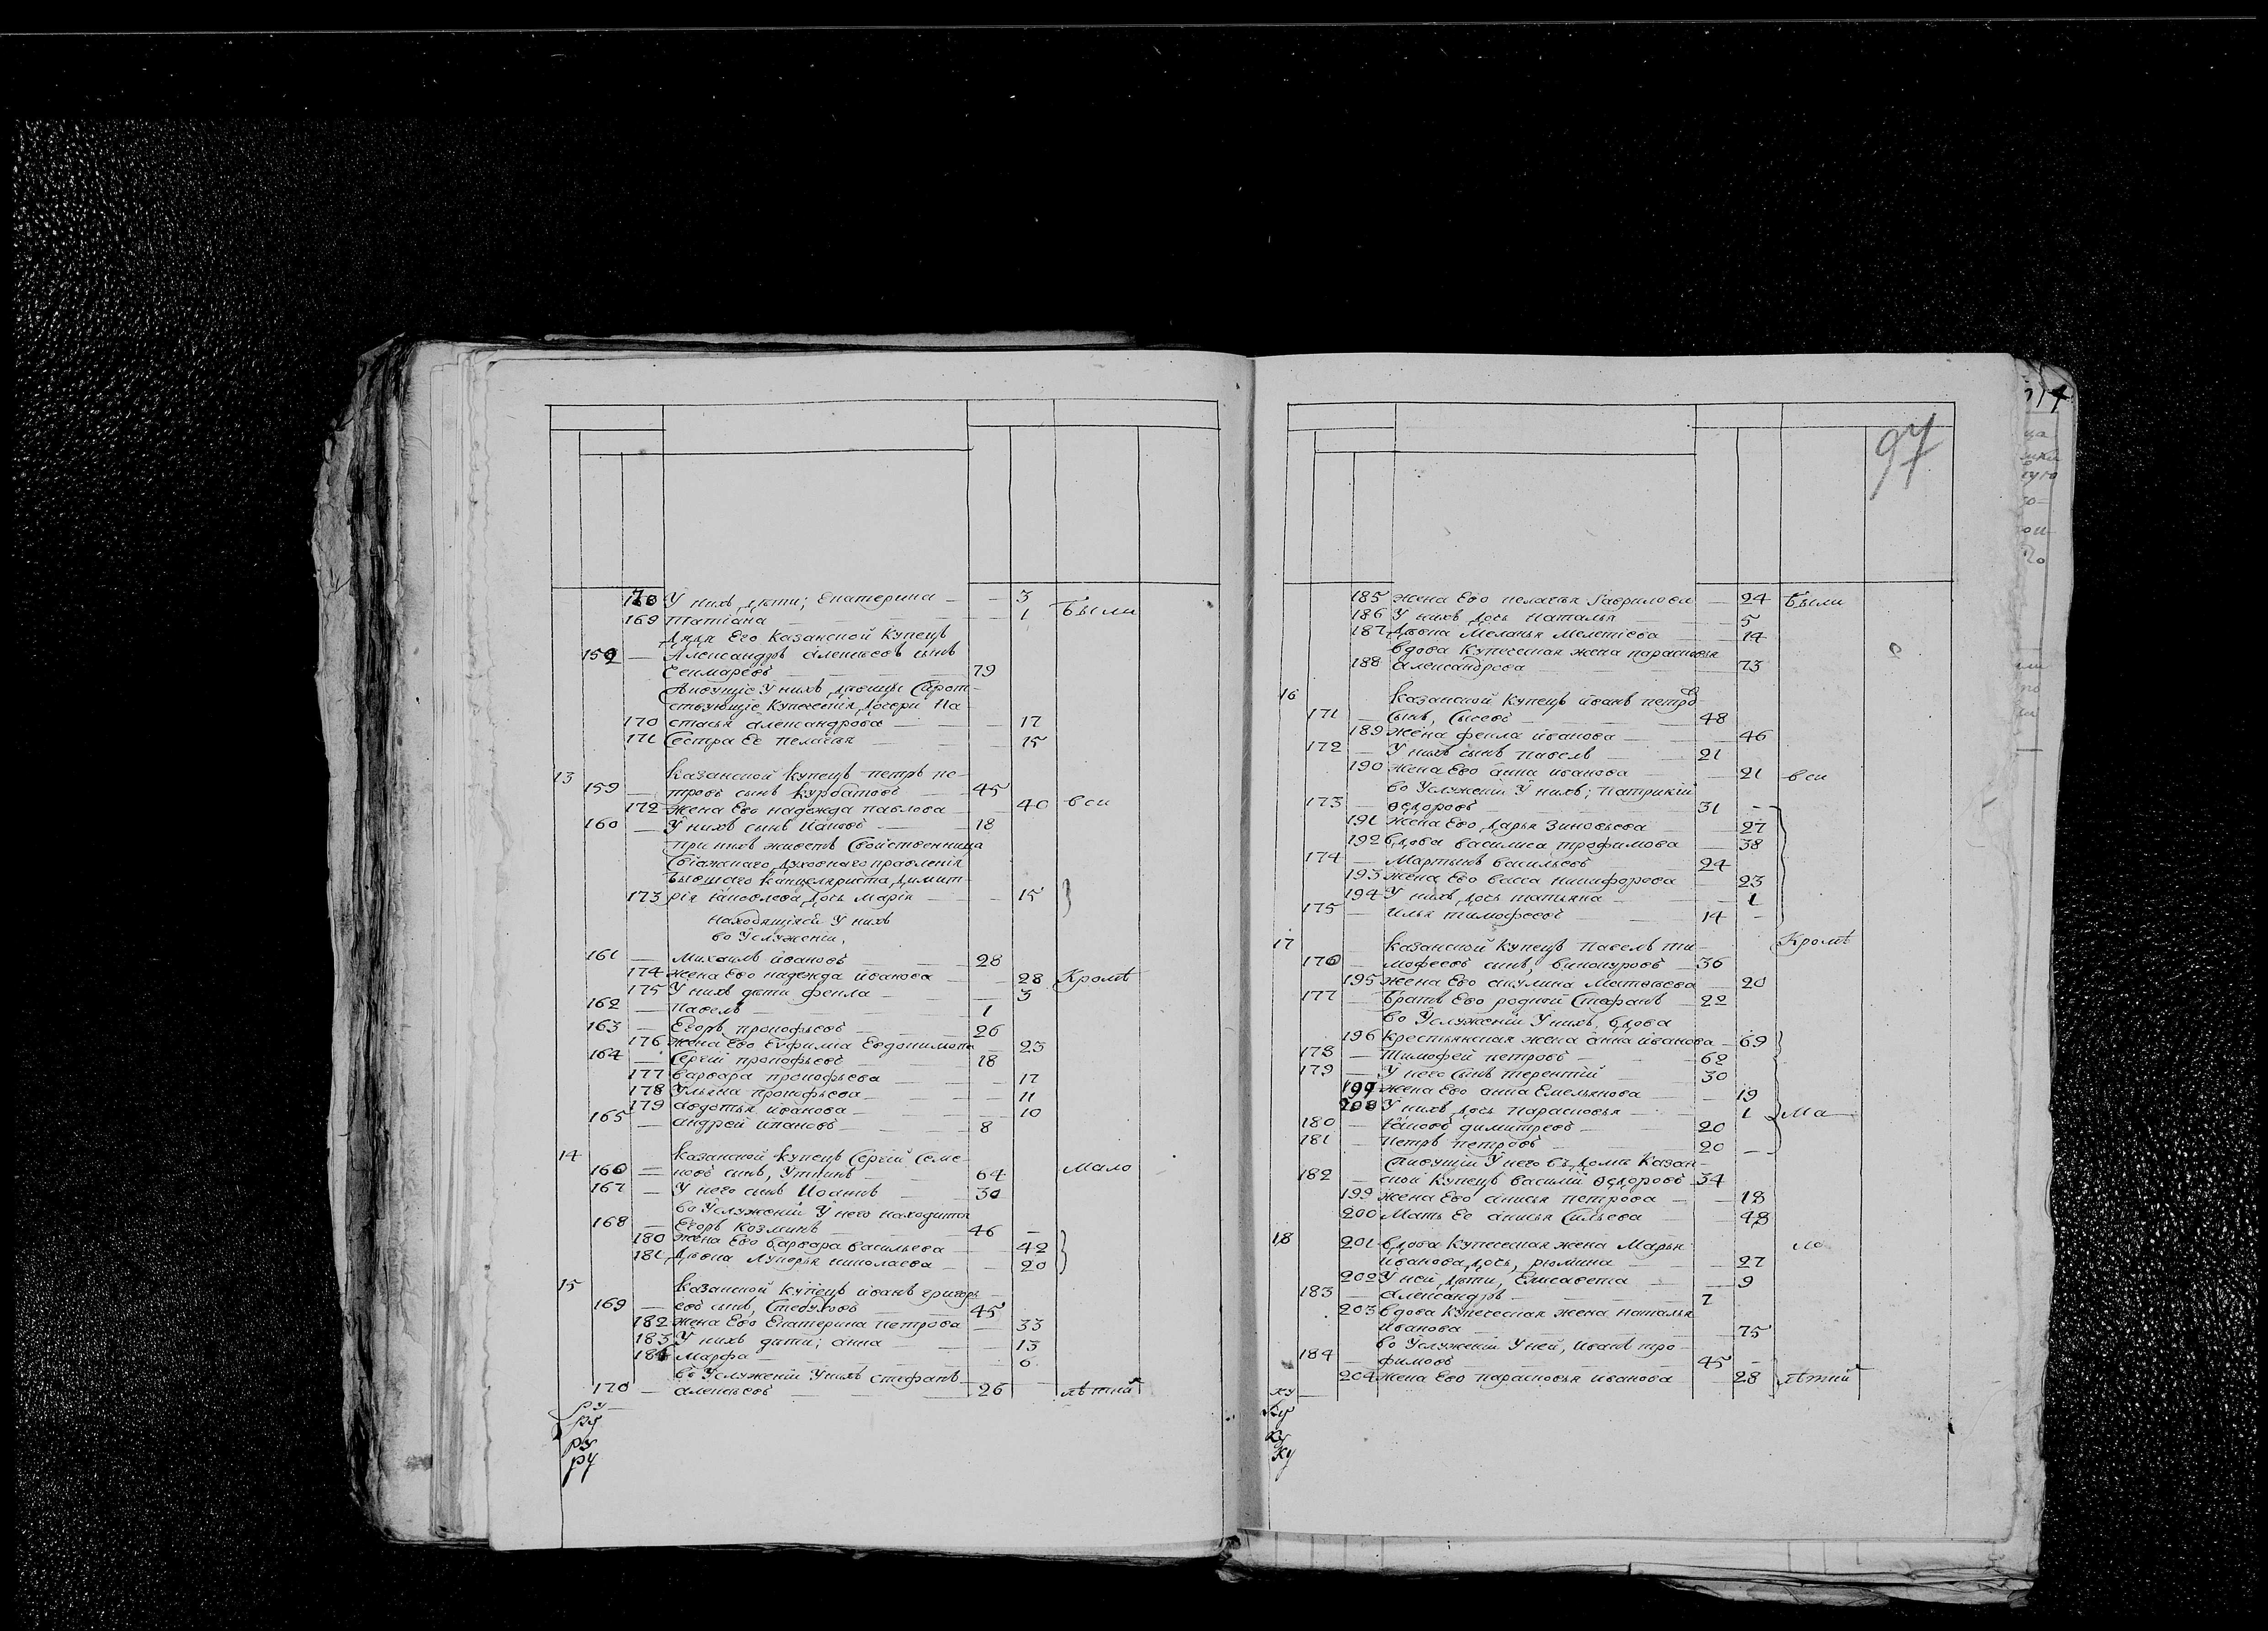 У нихъ дѣти; Екатерина — — 3
169 Татіана — — 1 Были
Дядя Его Казанской Купецъ
159 — Александръ Алексѣевъ сынъ
79
Живущіе У нихъ дѣвицы Сирот-
ствующіе Купеческія дочери На
170 стасья Александрова — — 17
171 Сестра Ее Пелагея — — 15
13 Казанской Купецъ Петръ Пе-
159 — тровъ сынъ Курбатовъ — 45
172 Жена Ево Надежда Павлова — 40 вси
160 — У нихъ сынъ Иаковъ — 18
При нихъ живетъ Свойственница
Свіажнаго духовнаго правленія
бывшаго Канцеляриста Димит-
173 рія Іаковлева дочь Марія — — 15
Находящіися У нихъ
во Услуженіи,
161 — Михаилъ Ивановъ — 28
174 Жена Ево Надежда Иванова — 28 Кромѣ
175 У нихъ дѣти Фекла — 3
162 — Павелъ — 1
163 — Егоръ Прокофьевъ — 26
176 Жена Ево Евфимiа Евдокимова — 23
164 — Сергій Прокофьевъ — 18
177 Варвара Прокофьева — 17
178 Ульяна Прокофьева — 11
179 Авдотья Иванова — 10
165 — Андрей Ивановъ — 8
14 Казанской Купецъ Сергій Семе-
166 — новъ сынъ, Уткинъ — 64 Мало
167 — У него сынъ Иоаннъ — 30
во Услуженіи У него находится
168 — Егоръ Козминъ — 46 —
180 Жена Ево Варвара Васильева — 42
181 Дѣвка Лукерья Николаева — 20
15 Казанской Купецъ Иванъ Григорь-
169 — евъ сынъ, — 45
182 Жена Ево Екатерина Петрова — 33
183 У нихъ дѣти; Анна — 13
184 Марфа — 6
во Услуженіи У нихъ Стефанъ
170 — Алексѣевъ — 26 лѣтній
ру
ру
ру
ру
97
185 Жена Ево Пелагея Гаврилова — 24 Были
186 У нихъ дочь Наталья — 5
187 Дѣвка Меланья Мелетіева — 14
Вдова Купеческая жена Парасковья
188 Александрова — 73
16 Казанской Купецъ Иванъ Петровъ
171 — Сынъ, Сысоевъ — 48
189 Жена Фекла Иванова — 46
172 — У нихъ сынъ Павелъ — 21
190 Жена Ево Анна Иванова — 21 вси
во Услуженіи У нихъ; Патрикій
173 — Ѳедоровъ — 31 —
191 Жена Ево Дарья Зиновьева — 27
192 Вдова Василиса Трофимова — 38
174 — Мартынъ Васильевъ — 24
193 Жена Ево Васса Никифорова — 23
194 У нихъ дочь Татьяна — 1
175 — Илья Тимофеевъ — 14 —
17 Казанской Купецъ Павелъ Ти- Кромѣ
176 — мофеевъ сынъ, Винокуровъ — 36
195 Жена Ево Акулина Матвѣева — 20
177 — Братъ Ево родной Стефанъ — 22
во Услуженіи У нихъ, Вдова
196 Крестьянская жена Анна Иванова — 69
178 — Тимофей Петровъ — 62
179 — У него Сынъ Терентій — 30
197 Жена Ево Анна Емельянова — 19
200 У нихъ дочь Парасковья — 1 Ма
180 — Іаковъ Димитревъ — 20
181 — Петръ Петровъ — 20
Живущіи У него въ домѣ Казан-
182 — ской Купецъ Василій Ѳедоровъ 34
199 Жена Ево Анисья Петрова — 18
200 Мать Ее Анисья Сильева — 48
18 201 Вдова Купеческая жена Марья ло
Иванова дочь, Рюмина — 27
202 У ней дѣти, Елисавета — 9
183 — Александръ — 7
203 Вдова Купеческая жена Наталья
Иванова — 75
во Услуженіи У ней, Иванъ Тро-
184 — фимовъ — 45 —
204 Жена Ево Парасковья Иванова — 28 лѣтній
ку
ку
ку
ку